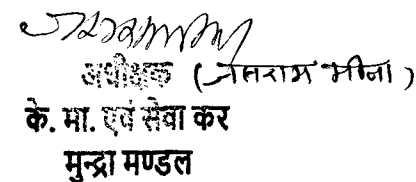 अधीक्षक (जसराम मीना)
के. मा. एवं सेवा कर
मुन्द्रा मण्डल